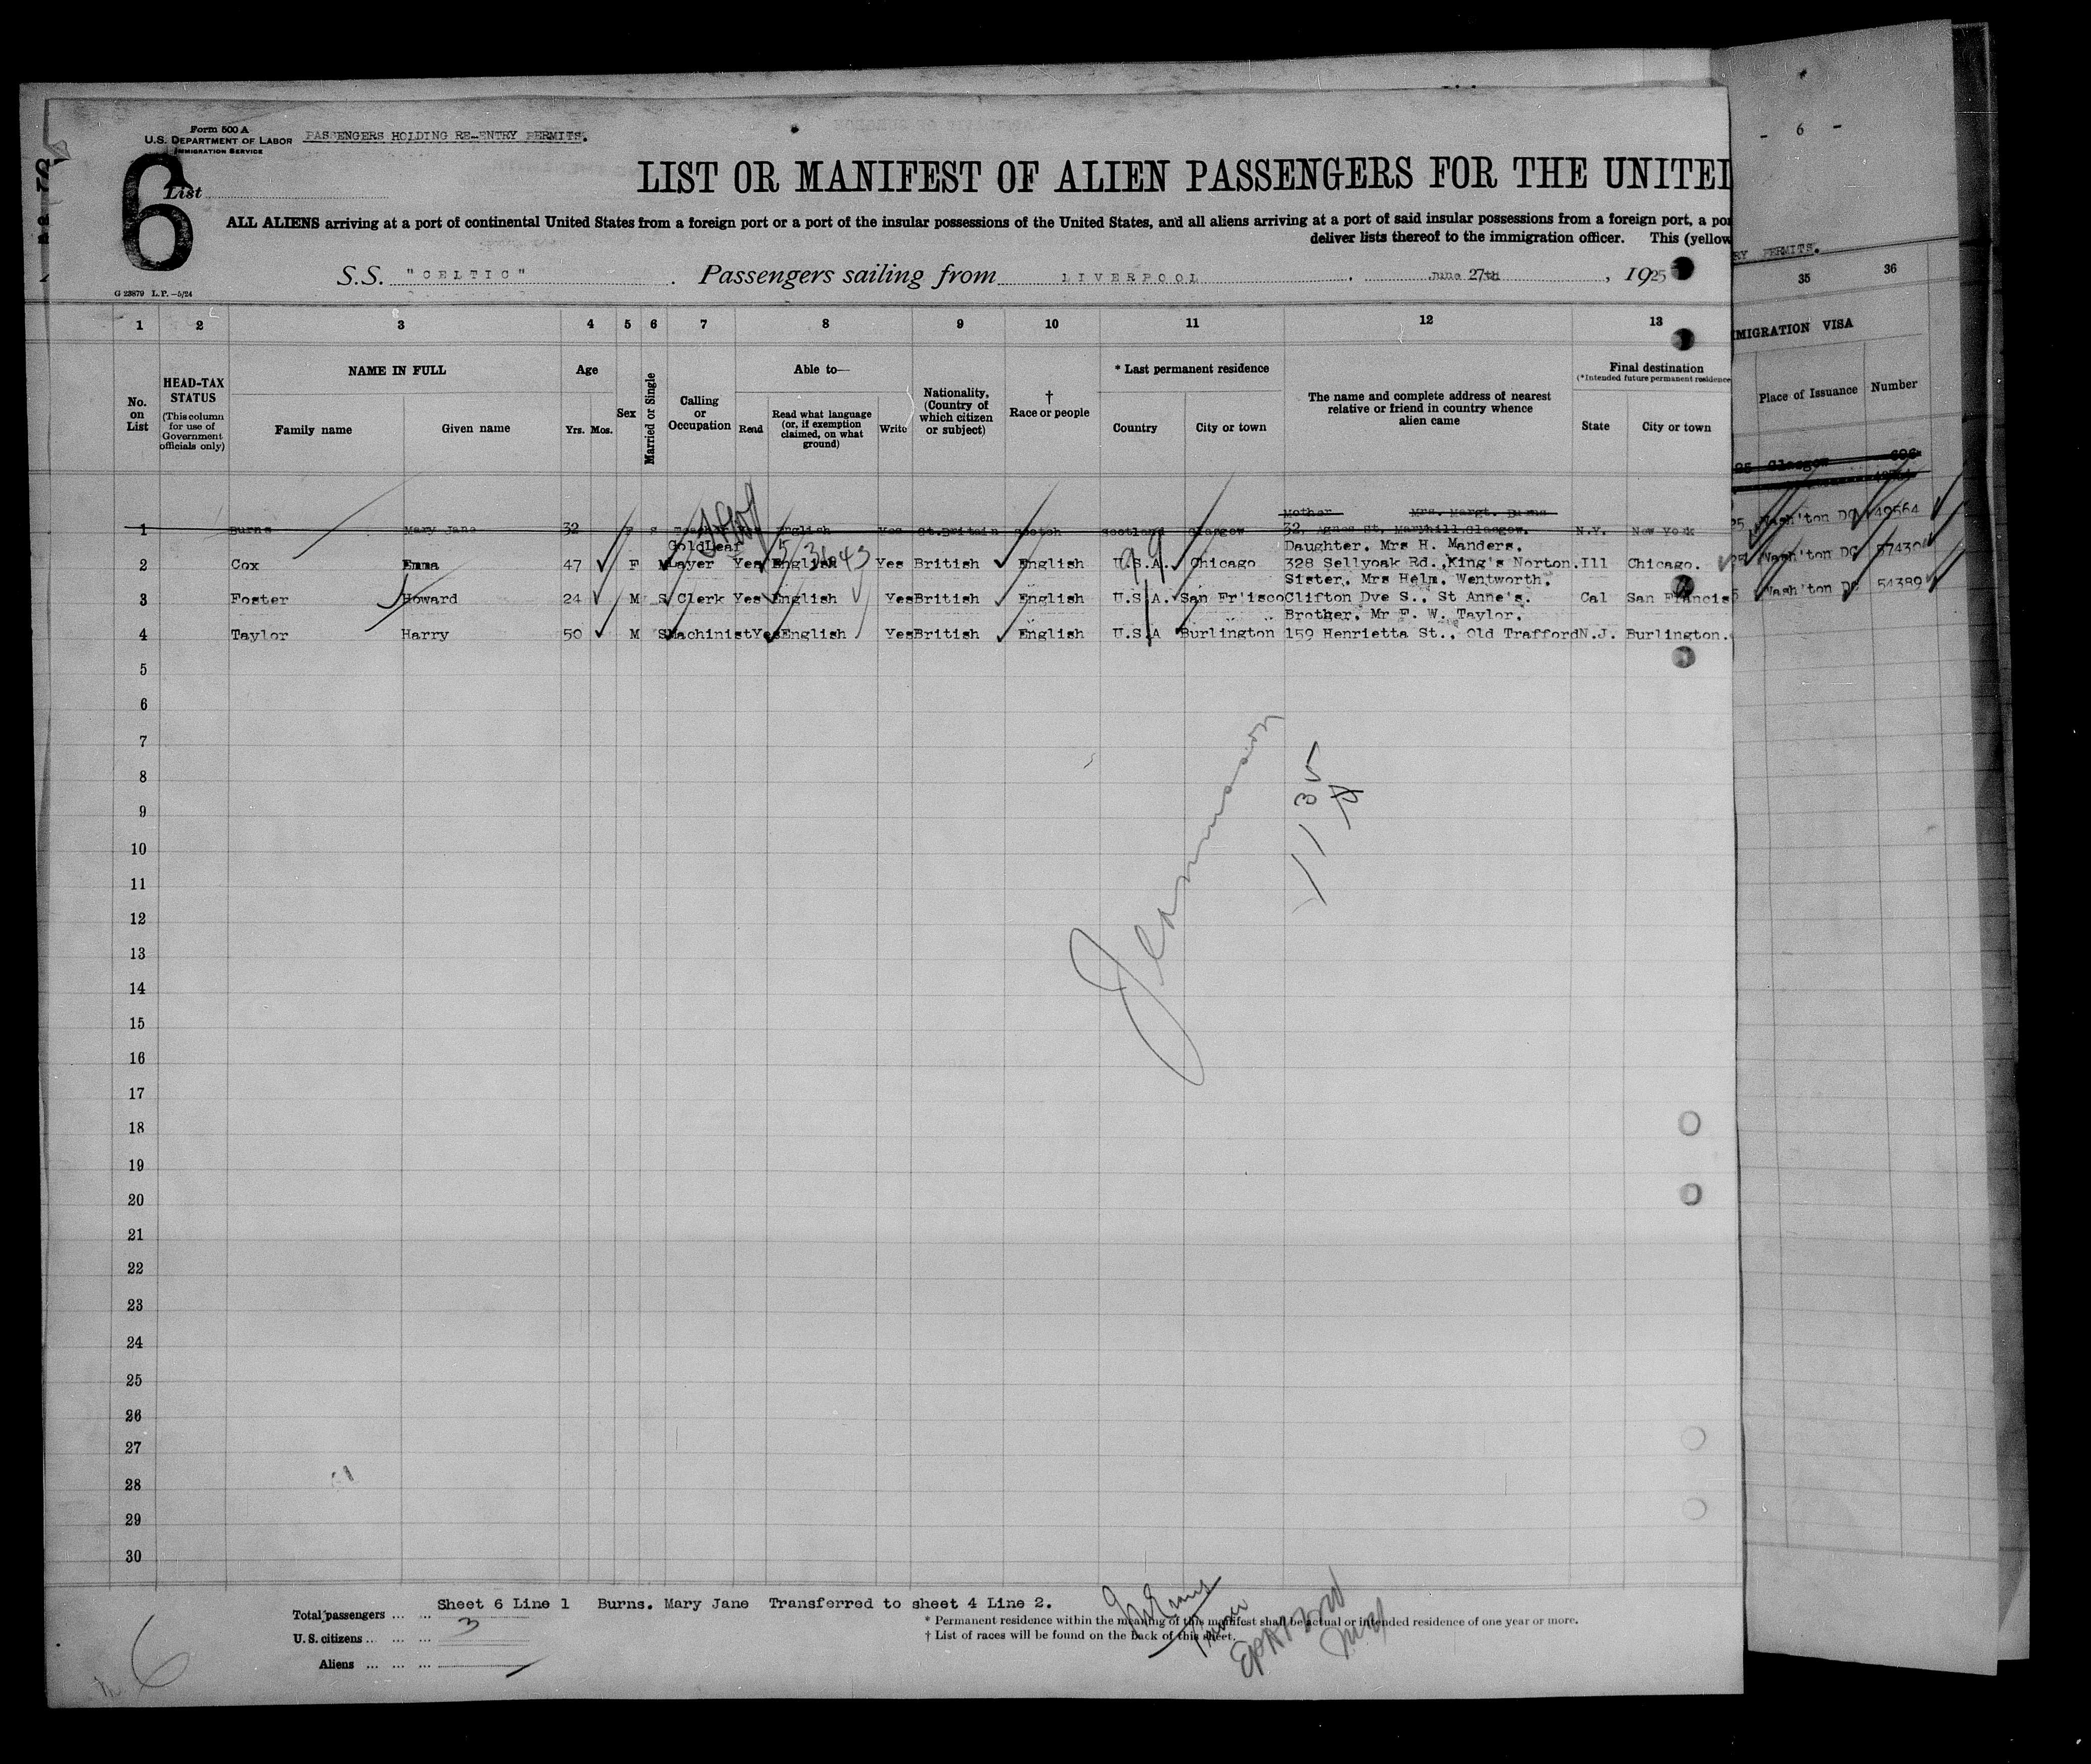 Form 500 A
U.S. DEPARTMENT OF LABOR
IMMIGRATION SERVICE
PASSENGERS HOLDING RE-ENTRY PERMITS.
6
List
LIST OR MANIFEST OF ALIEN PASSENGERS FOR THE UNITED
ALL ALIENS arriving at a port of continental United States from a foreign port or a port of the insular possessions of the United States, and all aliens arriving at a port of said insular possessions from a foreign port, a por
deliver lists thereof to the immigration officer. This (yellow
S.S. "CELTIC". Passengers sailing from LIVERPOOL. June 27th, 1925
G 23879 L.P.—5/24
1 2 3 4 5 6 7 8 9 10 11 12 13
No. on List
HEAD-TAX STATUS
(This column for use of Government officials only)
NAME IN FULL
Family name
Given name
Age
Yrs. Mos.
Sex
Married or Single
Calling or Occupation
Able to—
Read
Read what language (or, if exemption claimed, on what ground)
Write
Nationality. (Country of which citizen or subject)
† Race or people
* Last permanent residence
Country
City or town
The name and complete address of nearest relative or friend in country whence alien came
Final destination
(*Intended future permanent residence
State
City or town
Mother Mrs. Margt. Burns
1 Burns Mary Jane 32 F S Teacher Yes English Yes Gt.Britain Scotch Scotland Glasgow 32, Agnes St, Maryhill, Glasgow. N.Y. New York
GoldLeaf Daughter. Mrs H. Manders.
2 Cox Emma 47 F M Layer Yes English Yes British English U.S.A. Chicago 328 Sellyoak Rd. King's Norton. Ill Chicago.
Sister. Mrs Helm. Wentworth.
3 Foster Howard 24 M S Clerk Yes English Yes British English U.S.A. San Fr'isco Clifton Dve S., St Anne's. Cal San Francis
Brother. Mr F. W. Taylor.
4 Taylor Harry 50 M S Machinist Yes English Yes British English U.S.A Burlington 159 Henrietta St., Old Trafford N.J. Burlington.
5
6
7
8
9
10
11
12
13
14
15
16
17
18
19
20
21
22
23
24
25
26
27
28
29
30
Sheet 6 Line 1 Burns. Mary Jane Transferred to sheet 4 Line 2.
Total passengers
3
U.S. citizens
Aliens
* Permanent residence within the meaning of this manifest shall be actual or intended residence of one year or more.
† List of races will be found on the back of this sheet.
6
- 6 -
RY PERMITS.
35 36
MIGRATION VISA
Place of Issuance
Number
25 Glasgow 696
25 Wash'ton DC 49664
25 Wash'ton DC 57430
Wash'ton DC 54389